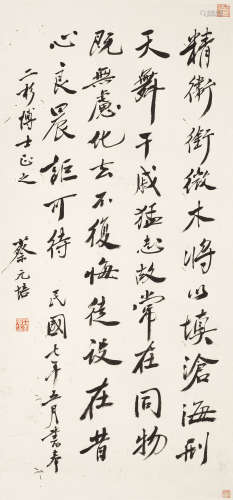 精衛銜微木將以填滄海刑
天舞干戚猛志故常在同物
既無慮化去不復悔徒設在昔
心良晨詎可待 民國七年五月書奉
二 博士正之
蔡元培